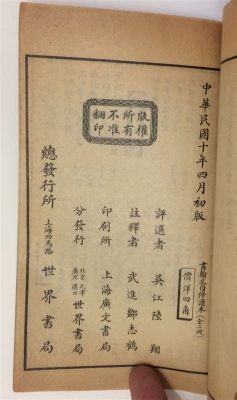 中華民國十年四月初版
書翰文自修讀本(全二冊)
價洋四角
評選者 吳江陸翔
註釋者 武進鄒志鶴
印刷所 上海廣文書局
分發行 北京 天津 廣州 漢口 世界書局
版權所有不准翻印
總發行所 上海四馬路 世界書局